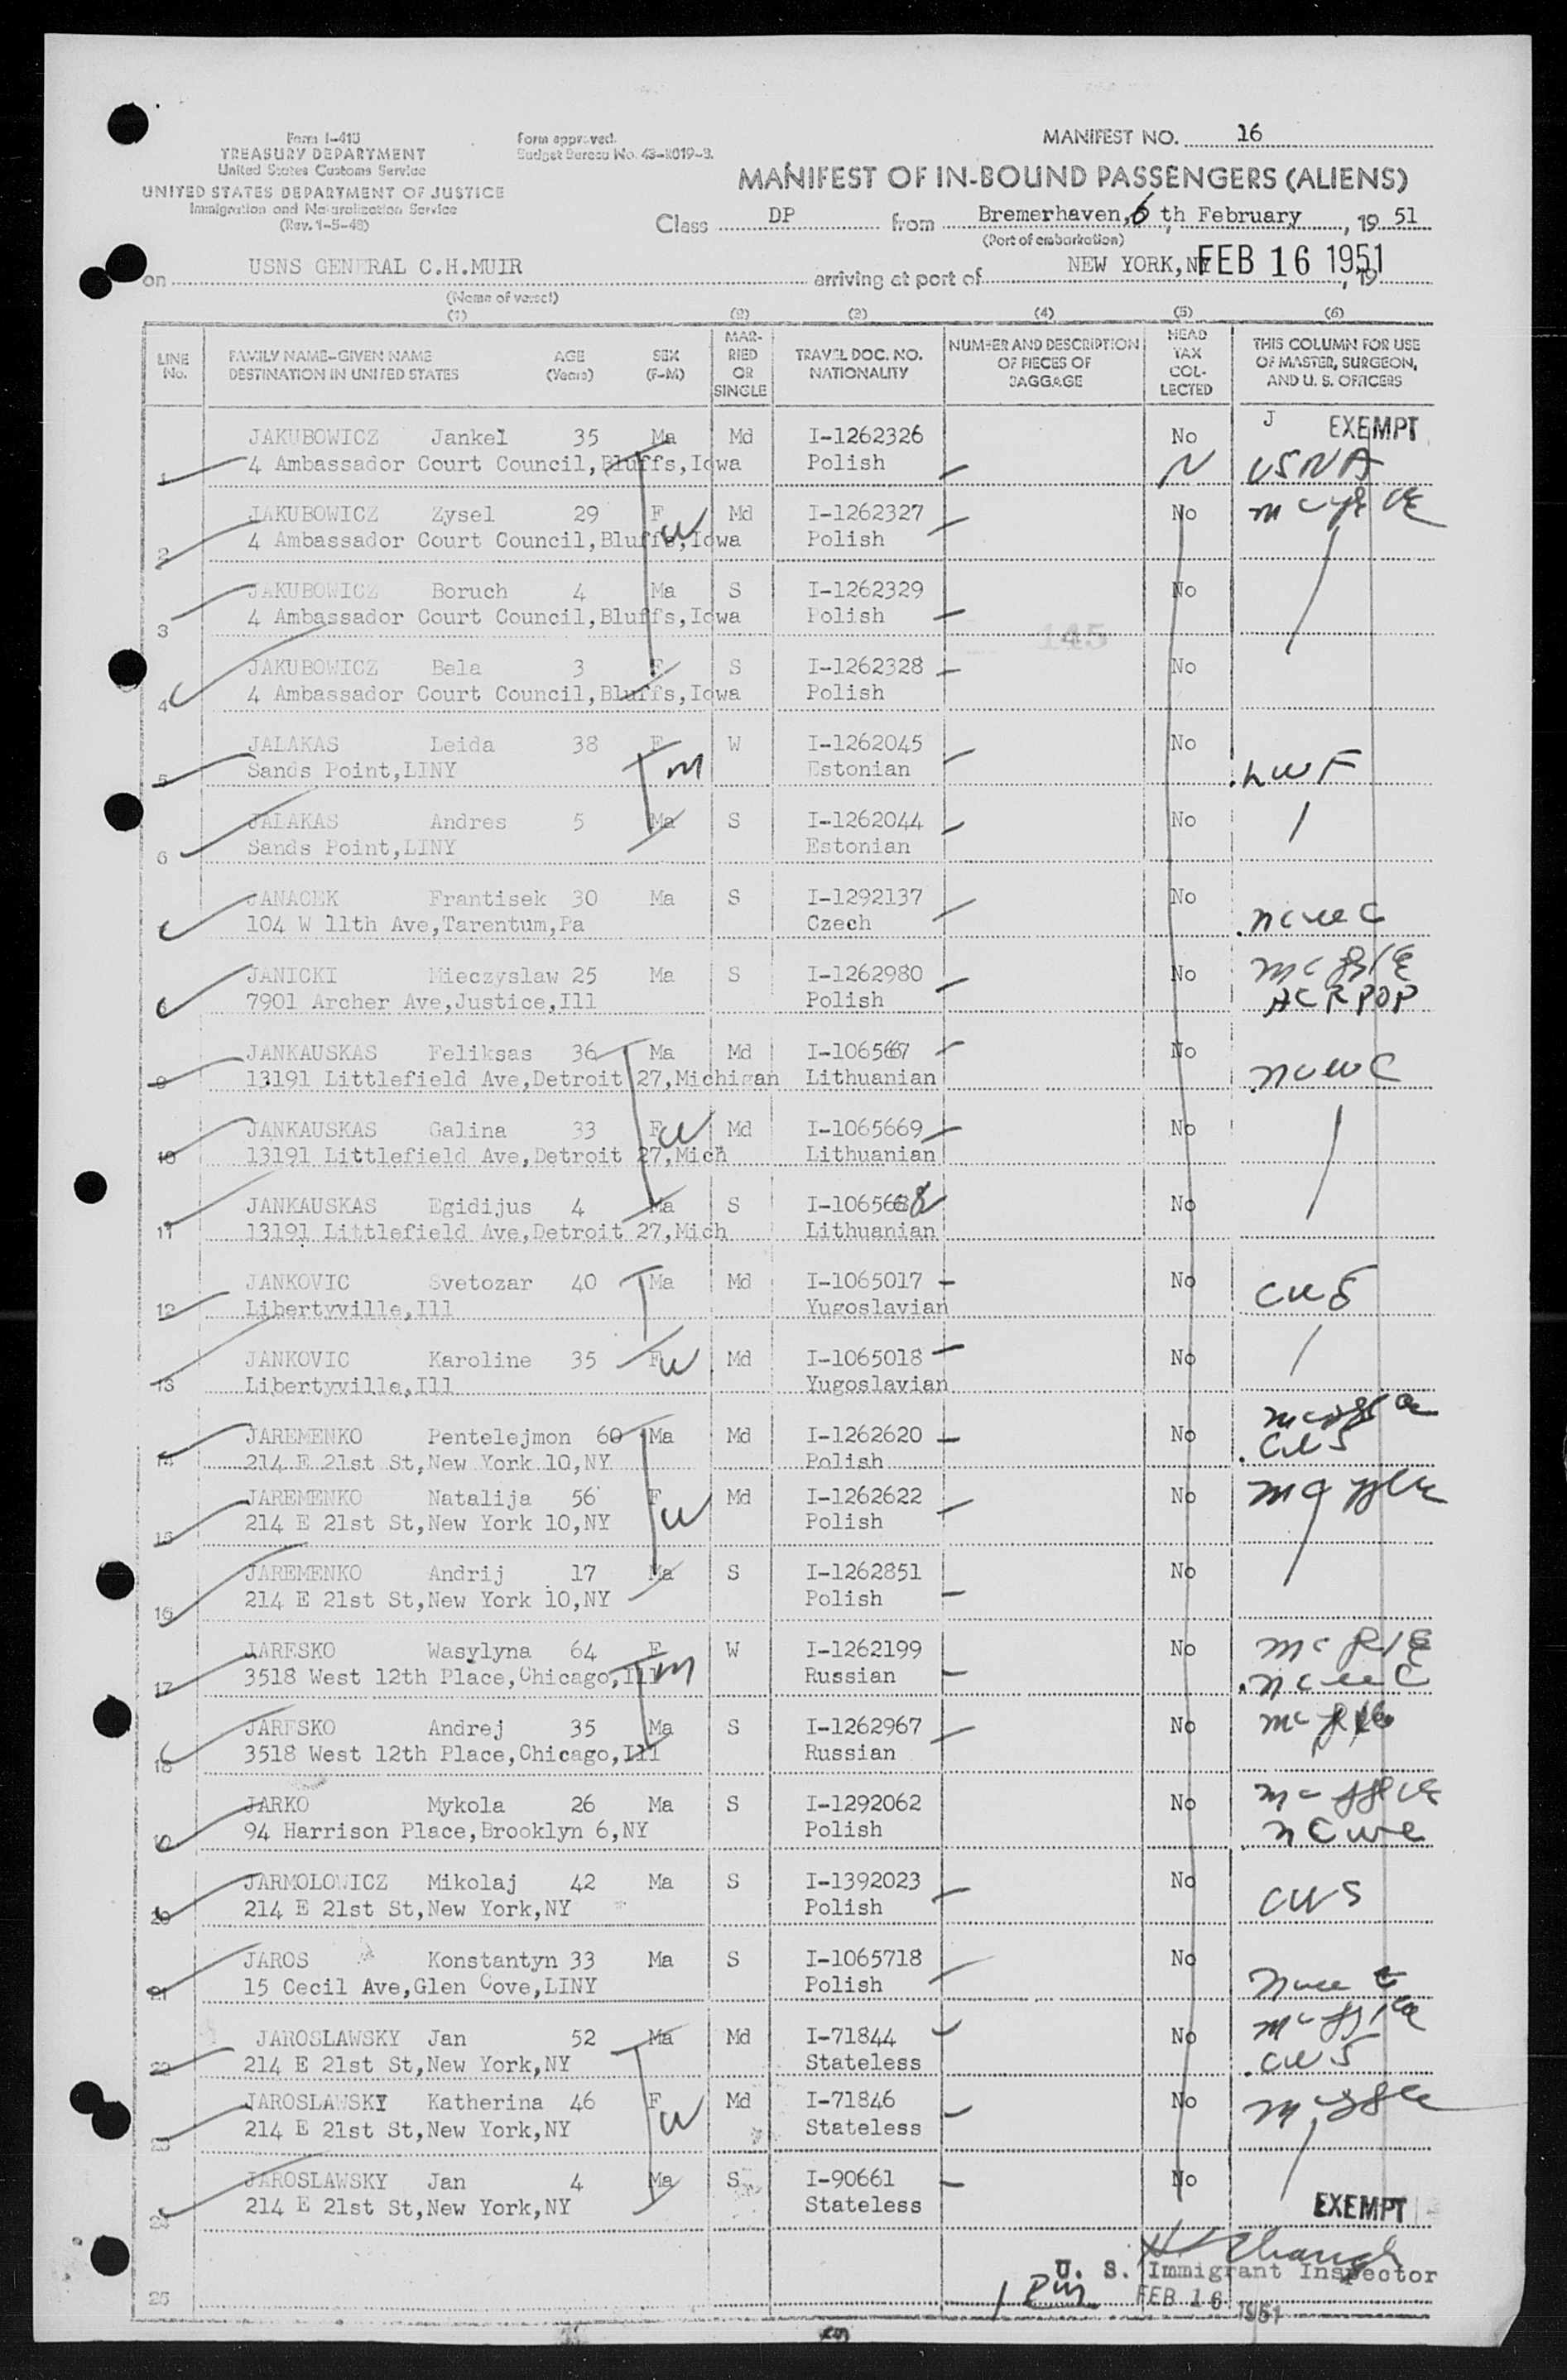 Form I-415
TREASURY DEPARTMENT
United States Customs Service
UNITED STATES DEPARTMENT OF JUSTICE
Immigration and Naturalization Service
(Rev. 1-5-48)
Form approved.
Budget Bureau No. 43-R019-3.
MANIFEST NO. 16
MANIFEST OF IN-BOUND PASSENGERS (ALIENS)
Class DP from Bremerhaven, 6 th February, 19 51
(Port of embarkation)
on USNS GENERAL C.H.MUIR arriving at port of NEW YORK, NY FEB 16 1951, 19
(Name of vessel)
(1) (2) (3) (4) (5) (6)
LINE No. FAMILY NAME—GIVEN NAME DESTINATION IN UNITED STATES AGE (Years) SEX (F-M) MARRIED OR SINGLE TRAVEL DOC. NO. NATIONALITY NUMBER AND DESCRIPTION OF PIECES OF BAGGAGE HEAD TAX COLLECTED THIS COLUMN FOR USE OF MASTER, SURGEON, AND U. S. OFFICERS
JAKUBOWICZ Jankel 35 Ma Md I-1262326 No J EXEMPT
1 4 Ambassador Court Council,Bluffs,Iowa Polish N USNA
JAKUBOWICZ Zysel 29 F W Md I-1262327 No
2 4 Ambassador Court Council,Bluffs,Iowa Polish
JAKUBOWICZ Boruch 4 Ma S I-1262329 No
3 4 Ambassador Court Council,Bluffs,Iowa Polish
145
JAKUBOWICZ Bela 3 F S I-1262328 No
4 4 Ambassador Court Council,Bluffs,Iowa Polish
JALAKAS Leida 38 F W I-1262045 No
5 Sands Point,LINY M Estonian LWF
JALAKAS Andres 5 Ma S I-1262044 No
6 Sands Point,LINY Estonian
JANACEK Frantisek 30 Ma S I-1292137 No
104 W 11th Ave,Tarentum,Pa Czech NCWC
JANICKI Mieczyslaw 25 Ma S I-1262980 No
7901 Archer Ave,Justice,Ill Polish ACRPDP
JANKAUSKAS Feliksas 36 Ma Md No
9 13191 Littlefield Ave,Detroit 27,Michigan Lithuanian NCWC
JANKAUSKAS Galina 33 F W Md I-1065669 No
10 13191 Littlefield Ave,Detroit 27,Mich Lithuanian
JANKAUSKAS Egidijus 4 Ma S No
11 13191 Littlefield Ave,Detroit 27,Mich Lithuanian
JANKOVIC Svetozar 40 Ma Md I-1065017 No
12 Libertyville,Ill Yugoslavian CWS
JANKOVIC Karoline 35 F W Md I-1065018 No
13 Libertyville,Ill Yugoslavian
JAREMENKO Pentelejmon 60 Ma Md I-1262620 No
14 214 E 21st St,New York 10,NY Polish CWS
JAREMENKO Natalija 56 F W Md I-1262622 No
15 214 E 21st St,New York 10,NY Polish
JAREMENKO Andrij 17 Ma S I-1262851 No
16 214 E 21st St,New York 10,NY Polish
JARESKO Wasylyna 64 F W I-1262199 No
17 3518 West 12th Place,Chicago,Ill M Russian NCWC
JARESKO Andrej 35 Ma S I-1262967 No
18 3518 West 12th Place,Chicago,Ill Russian
JARKO Mykola 26 Ma S I-1292062 No
19 94 Harrison Place,Brooklyn 6,NY Polish NCWC
JARMOLOWICZ Mikolaj 42 Ma S I-1392023 No
20 214 E 21st St,New York,NY Polish CWS
JAROS Konstantyn 33 Ma S I-1065718 No
21 15 Cecil Ave,Glen Cove,LINY Polish
JAROSLAWSKY Jan 52 Ma Md I-71844 No
22 214 E 21st St,New York,NY Stateless CWS
JAROSLAWSKY Katherina 46 F W Md I-71846 No
23 214 E 21st St,New York,NY Stateless
JAROSLAWSKY Jan 4 Ma S I-90661 No
24 214 E 21st St,New York,NY Stateless EXEMPT
U. S. Immigrant Inspector
25 FEB 16 1951